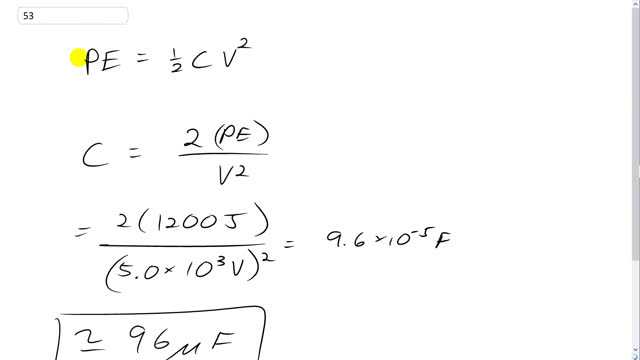 53
PE = ½ C V²
C = 2 (PE) / V²
= 2 (1200 J) / (5.0 × 10³ V)² = 9.6 × 10⁻⁵ F
≃ 96 μF